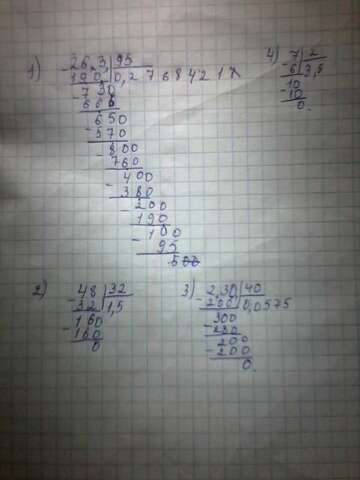 1) - 26,3 | 95
190 | 0,2768421
- 730
665
- 650
570
- 800
760
- 400
380
- 200
190
- 100
95
500
4) - 7 | 2
6 | 3,5
- 10
10
0
2) - 48 | 32
32 | 1,5
- 160
160
0
3) - 2,30 | 40
200 | 0,0575
300
- 280
200
- 200
0